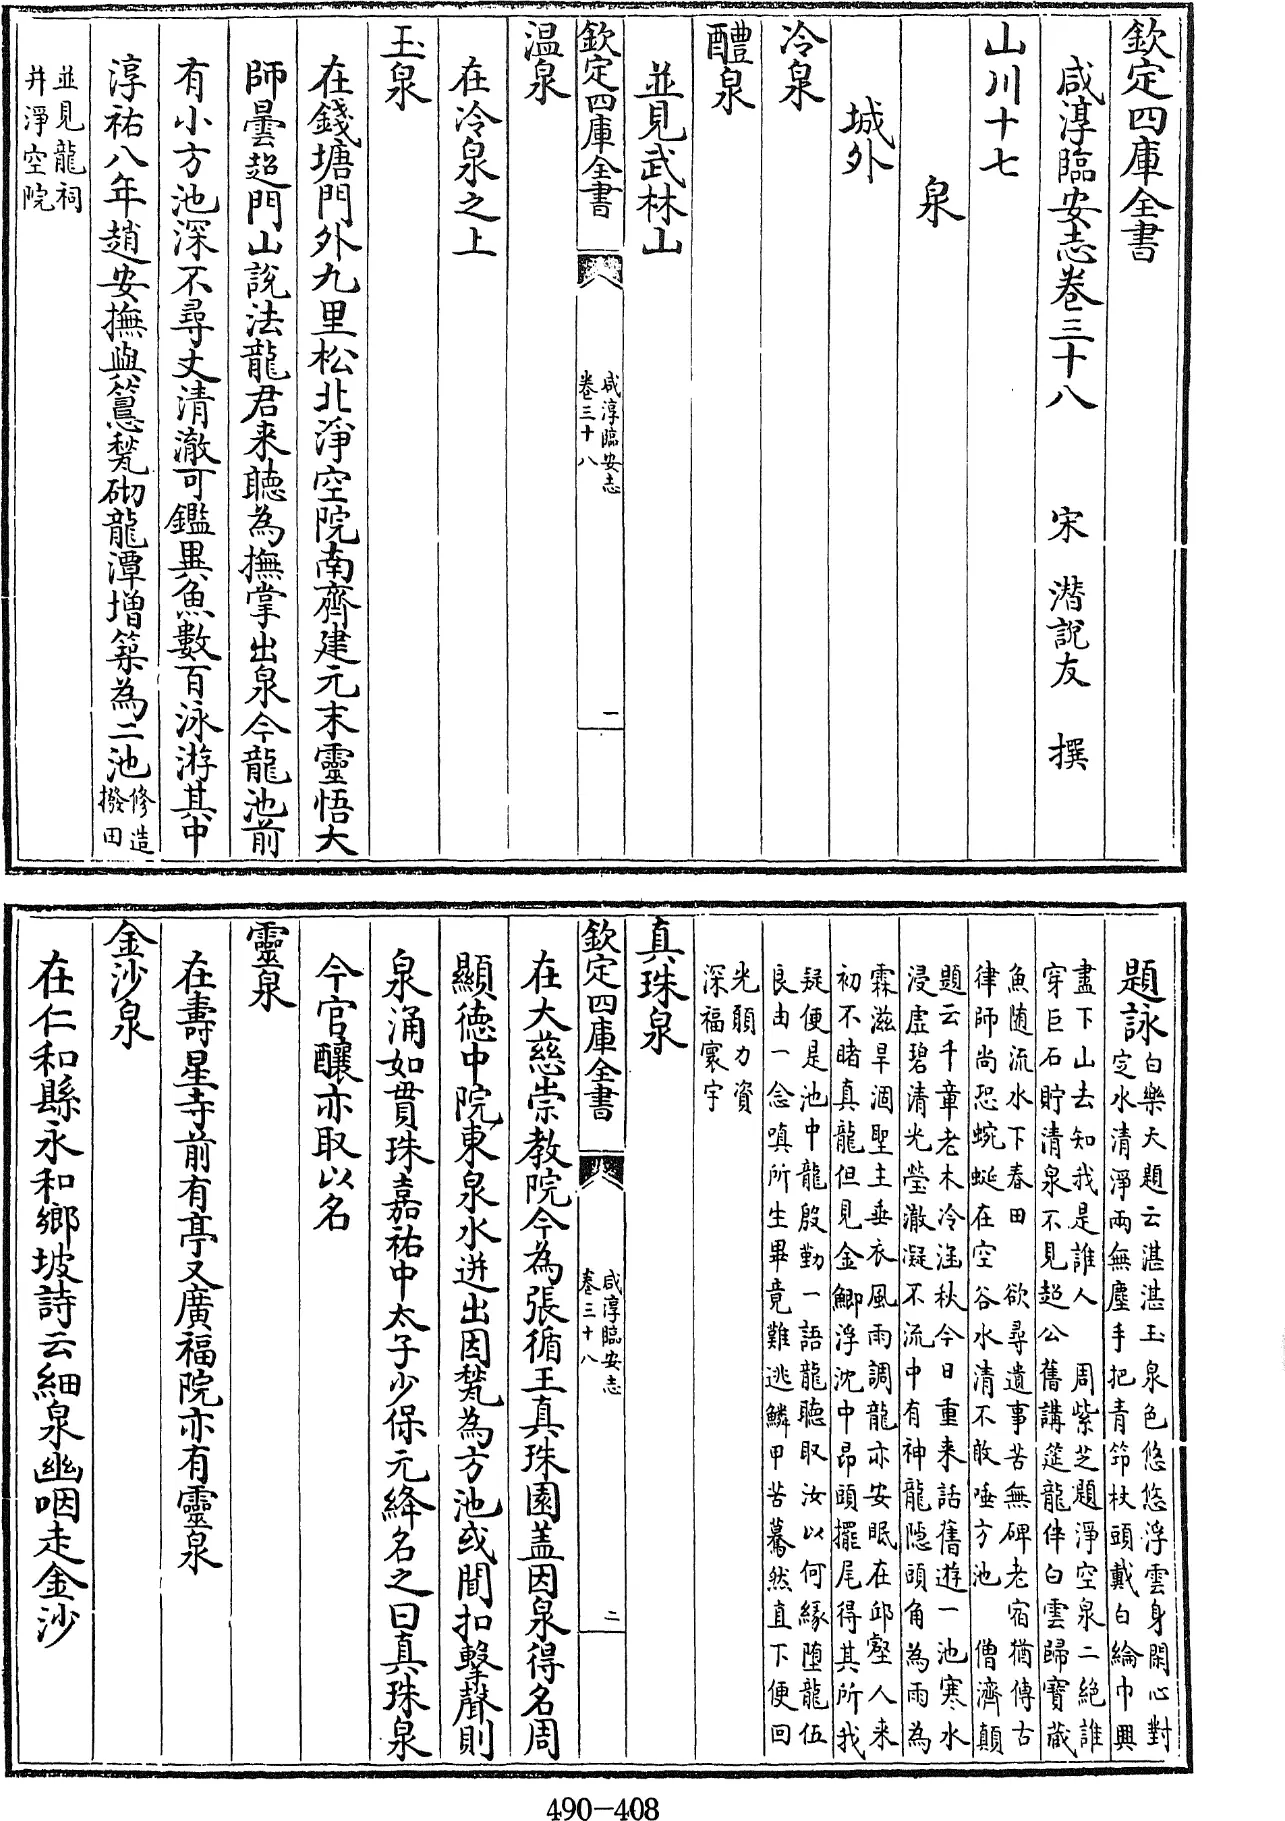 欽定四庫全書
咸淳臨安志卷三十八
宋 潛說友 撰
山川十七
泉
城外
冷泉
醴泉
並見武林山
欽定四庫全書
咸淳臨安志
卷三十八
一
溫泉
在冷泉之上
玉泉
在錢塘門外九里松北淨空院南齊建元末靈悟大
師曇超開山說法龍君來聽為撫掌出泉今龍池前
有小方池深不尋丈清澈可鑑異魚數百泳游其中
淳祐八年趙安撫與𥲅甃砌龍潭增築為二池修造
撥田
並見龍祠
井淨空院
題詠白樂天題云湛湛玉泉色悠悠浮雲身閑心對
定水清淨兩無塵手把青筇杖頭戴白綸巾興
盡下山去知我是誰人 周紫芝題淨空泉二絕誰
穿巨石貯清泉不見超公舊講筵龍伴白雲歸寶藏
魚隨流水下春田 欲尋遺事苦無碑老宿猶傳古
律師尚恐蜿蜒在空谷水清不敢唾方池 僧濟顛
題云千章老木冷涵秋今日重來話舊遊一池寒水
浸虛碧清光瑩澈凝不流中有神龍隱頭角為雨為
霖滋旱涸聖主垂衣風雨調龍亦安眠在邱壑人來
初不睹真龍但見金鯽浮沈中昂頭擺尾得其所我
疑便是池中龍殷勤一語龍聽取汝以何緣墮龍伍
良由一念嗔所生畢竟難逃鱗甲苦驀然直下便回
光願力資
深福寰宇
真珠泉
欽定四庫全書
咸淳臨安志
卷三十八
二
在大慈崇教院今為張循王真珠園蓋因泉得名周
顯德中院東泉水迸出因甃為方池或聞扣擊聲則
泉涌如貫珠嘉祐中太子少保元絳名之曰真珠泉
今官釀亦取以名
靈泉
在壽星寺前有亭又廣福院亦有靈泉
金沙泉
在仁和縣永和鄉坡詩云細泉幽咽走金沙
490-408